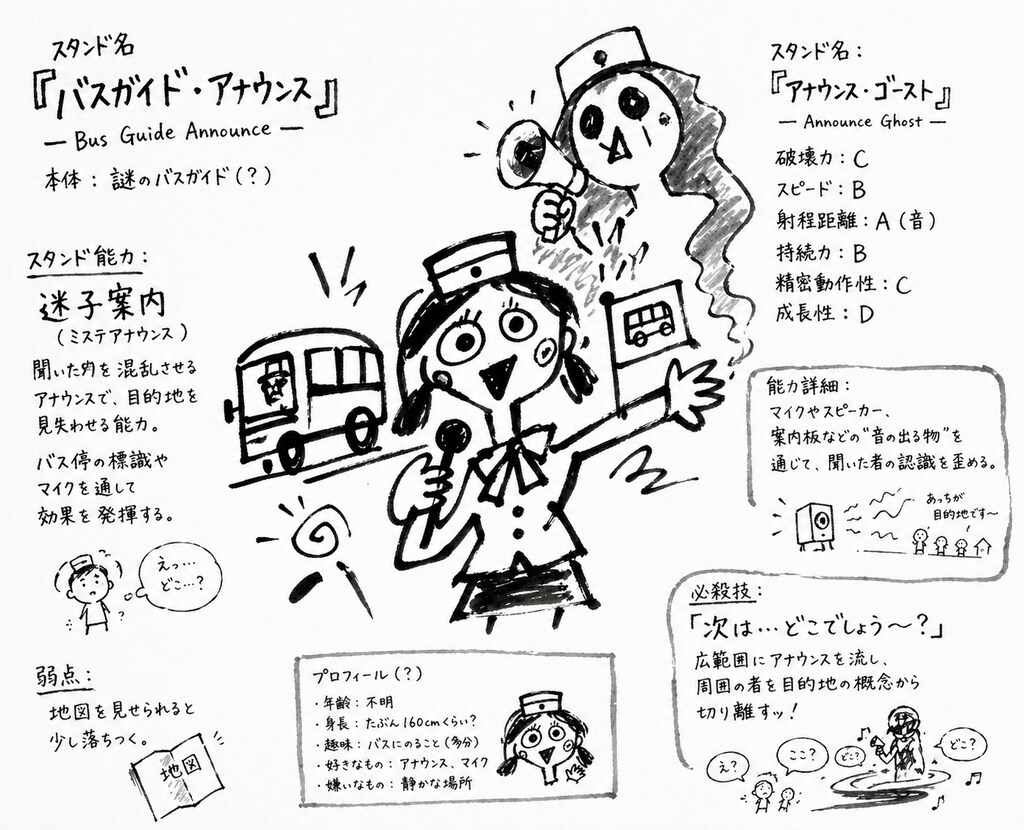 スタンド名
『バスガイド・アナウンス』
— Bus Guide Announce —
本体：謎のバスガイド(？)
スタンド能力：
迷子案内
(ミステアナウンス)
聞いた を混乱させる
アナウンスで、目的地を
見失わせる能力。
バス停の標識や
マイクを通して
効果を発揮する。
えっ…
どこ…？
？
弱点：
地図を見せられると
少し落ちつく。
地図
プロフィール(？)
・年齢：不明
・身長：たぶん160cmくらい？
・趣味：バスにのること(多分)
・好きなもの：アナウンス、マイク
・嫌いなもの：静かな場所
スタンド名：
『アナウンス・ゴースト』
— Announce Ghost —
破壊力：C
スピード：B
射程距離：A(音)
持続力：B
精密動作性：C
成長性：D
能力詳細：
マイクやスピーカー、
案内板などの"音の出る物"を
通じて、聞いた者の認識を歪める。
あっちが
目的地です〜
必殺技：
「次は…どこでしょう〜？」
広範囲にアナウンスを流し、
周囲の者を目的地の概念から
切り離すッ！
え？
ここ？
どこ？
どこ？